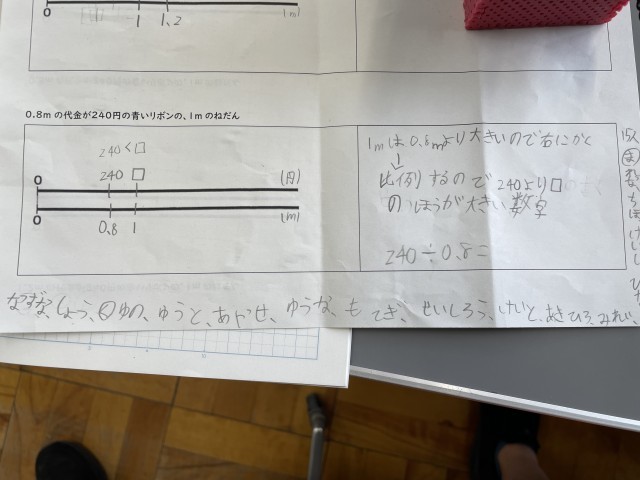 0
1
1.2
(m)
0.8mの代金が240円の青いリボンの、1mのねだん
240<□
240 □
0
(円)
0
(m)
0.8 1
1mは0.8mより大きいので右にかく
↓
比例するので240より□
のほうが大きい数字
240÷0.8=
しょう、ゆの、ゆうと、あかせ、ゆうな、もてぎ、せいしろう、けいと、あきひろ、みれい、